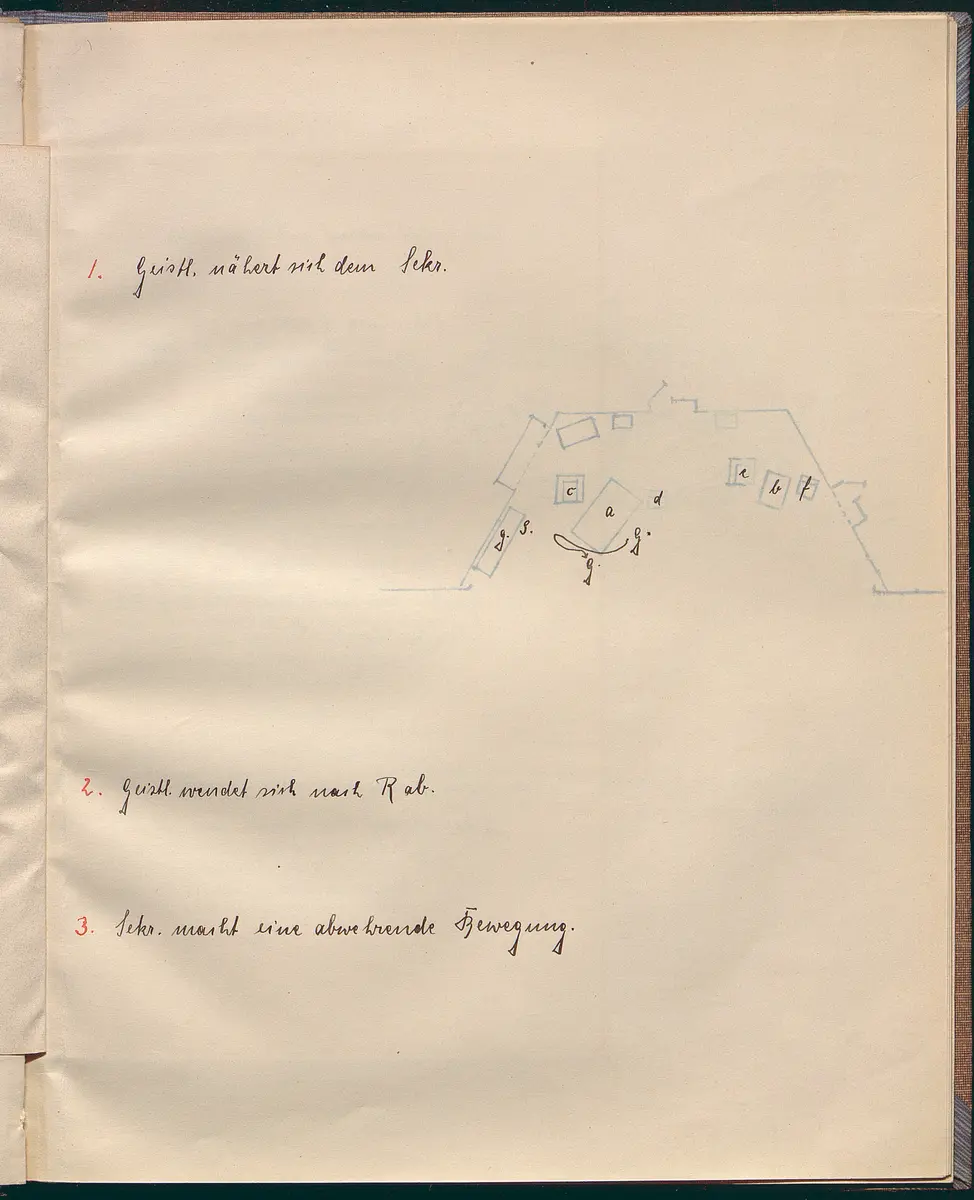 1. Geistl. nähert sich dem Sekr.
c a d e b f
g. S. G.
G.
2. Geistl. wendet sich nach R ab.
3. Sekr. macht eine abwehrende Bewegung.